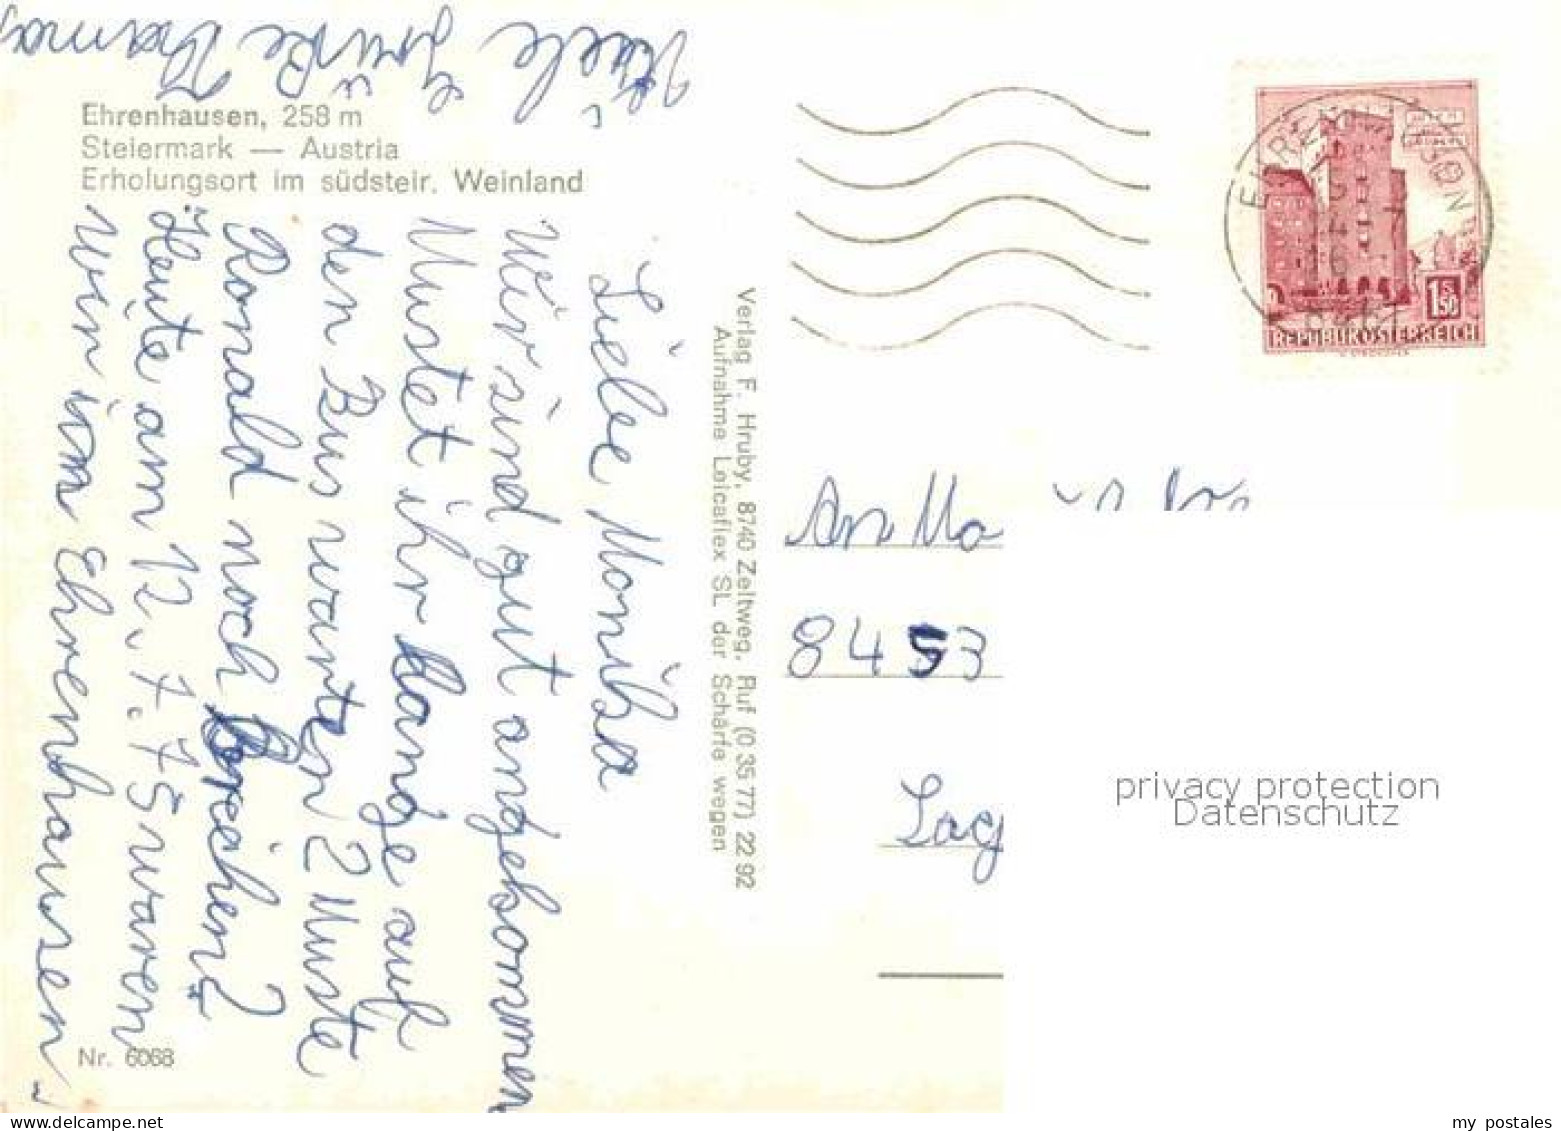 Ehrenhausen, 258 m
Steiermark — Austria
Erholungsort im südsteir. Weinland
Liebe Monika
Wir sind gut angekommen
Mustet ihr lange auf
den Bus warten? Muste
Ronald noch brechen?
Heute am 12. 7. 75 waren
wir im Ehrenhausen.
Viele Grüße
Nr. 6068
Verlag F. Hruby, 8740 Zeltweg. Ruf (0 35 77) 22 92
Aufnahme Leicaflex SL der Schärfe wegen
1 S 50
REPUBLIK ÖSTERREICH
An Mo
8453
privacy protection
Datenschutz
www.delcampe.net
my postales